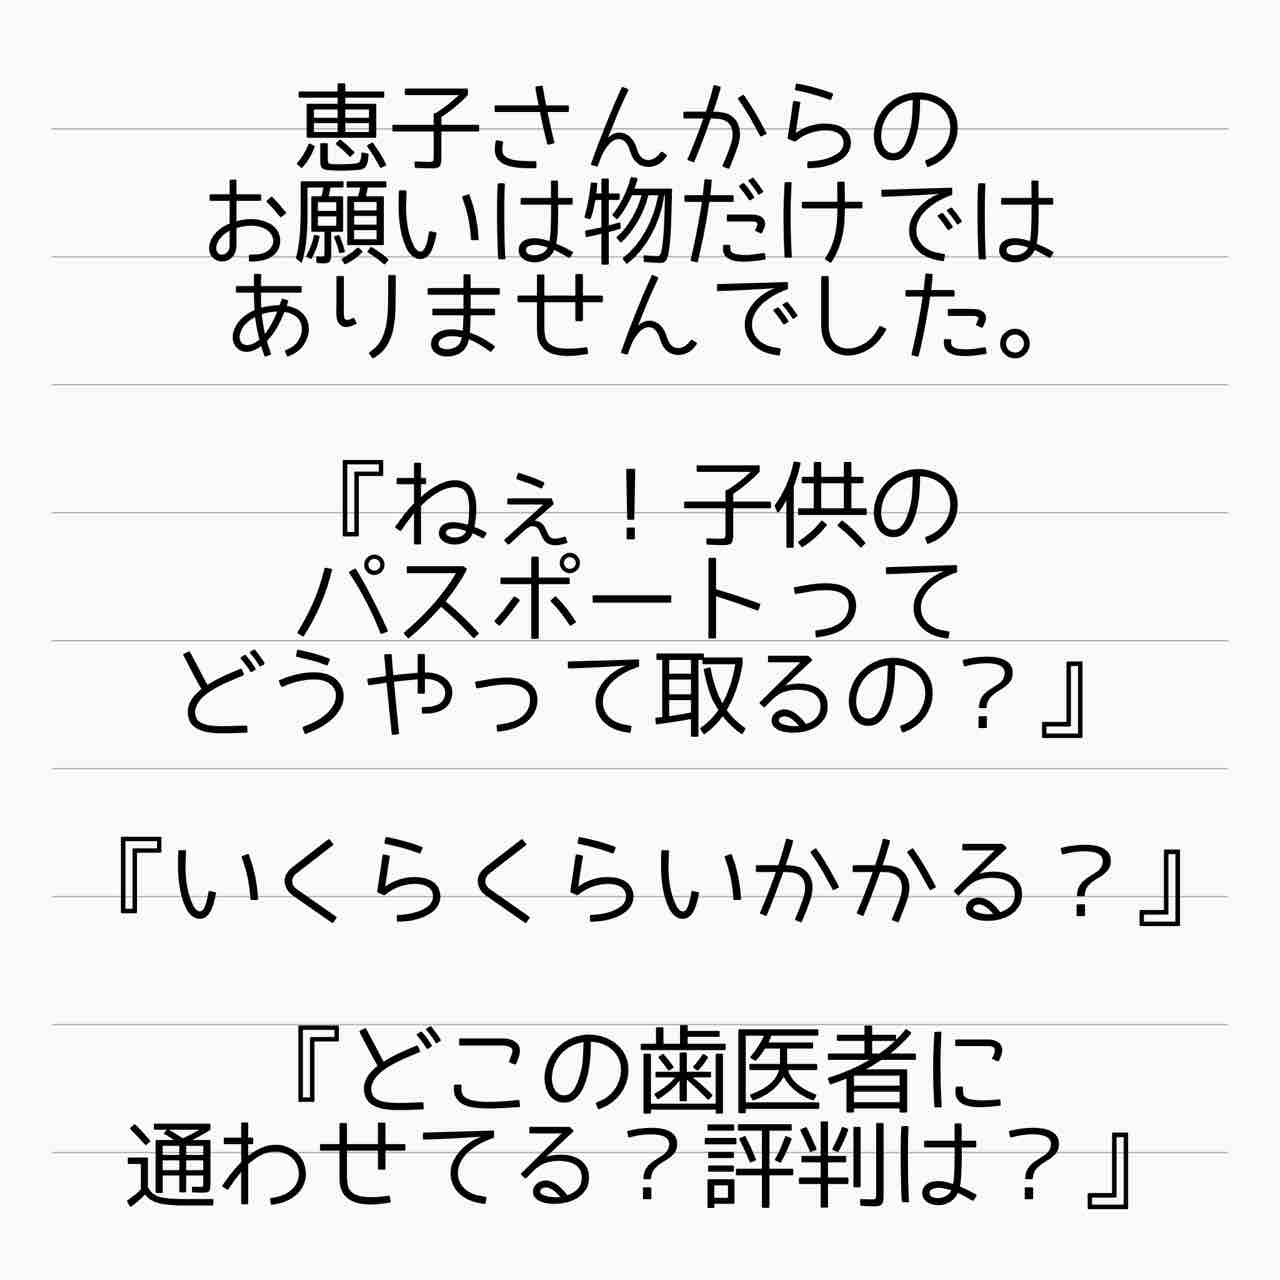 恵子さんからの
お願いは物だけでは
ありませんでした。
『ねぇ！子供の
パスポートって
どうやって取るの？』
『いくらくらいかかる？』
『どこの歯医者に
通わせてる？評判は？』